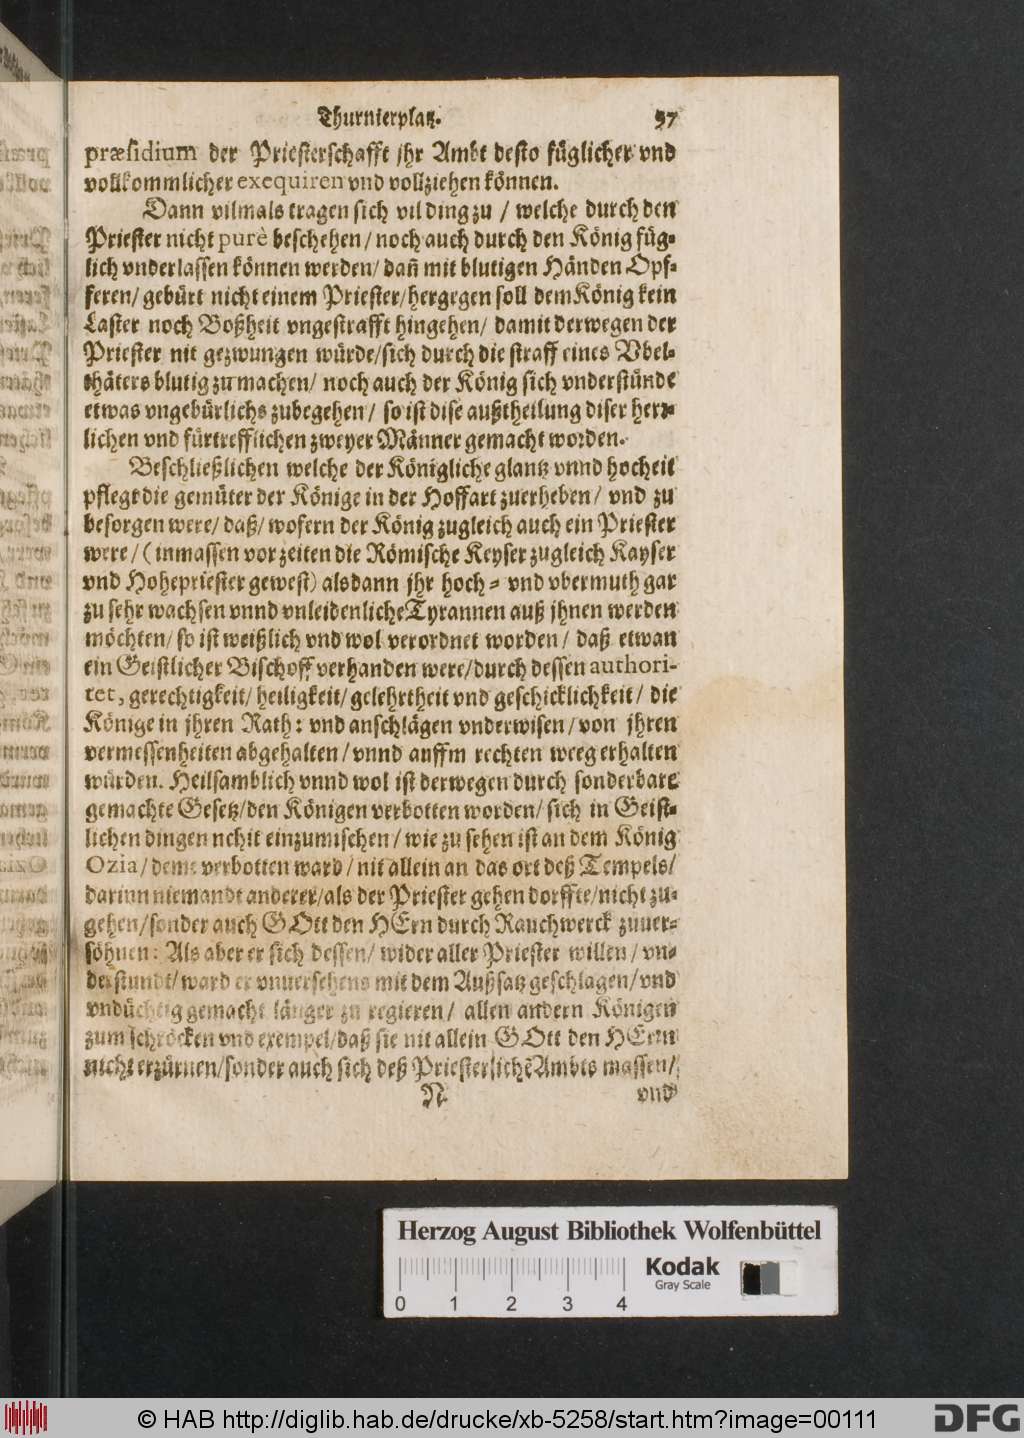 Thurnierplatz. 97
præsidium der Priesterschafft jhr Ambt desto füglicher vnd
vollkommlicher exequiren vnd vollziehen können.
Dann vilmals tragen sich vil ding zu / welche durch den
Priester nicht purè beschehen / noch auch durch den König füg-
lich vnderlassen können werden / dañ mit blutigen Händen Opf-
feren / gebürt nicht einem Priester / hergegen soll dem König kein
Laster noch Boßheit vngestrafft hingehen / damit derwegen der
Priester nit gezwungen würde / sich durch die straff eines Vbel-
thäters blutig zu machen / noch auch der König sich vnderstünde
etwas vngebürlichs zubegehen / so ist dise außtheilung diser herr-
lichen vnd fürtrefflichen zweyer Männer gemacht worden.
Beschließlichen welche der Königliche glantz vnnd hocheit
pflegt die gemüter der Könige in der Hoffart zuerheben / vnd zu
besorgen were / daß / wofern der König zugleich auch ein Priester
were / ( inmassen vor zeiten die Römische Keyser zugleich Kayser
vnd Hohepriester gewest) alsdann jhr hoch- vnd vbermuth gar
zu sehr wachsen vnnd vnleidenliche Tyrannen auß jhnen werden
möchten / so ist weißlich vnd wol verordnet worden / daß etwan
ein Geistlicher Bischoff verhanden were / durch dessen authori-
tet, gerechtigkeit / heiligkeit / gelehrtheit vnd geschicklichkeit / die
Könige in jhren Rath: vnd anschlägen vnderwisen / von jhren
vermessenheiten abgehalten / vnnd auffm rechten weeg erhalten
würden. Heilsamblich vnnd wol ist derwegen durch sonderbare
gemachte Gesetz / den Königen verbotten worden / sich in Geist-
lichen dingen nchit einzumischen / wie zu sehen ist an dem König
Ozia / deme verbotten ward / nit allein an das ort deß Tempels /
darinn niemandt anderer / als der Priester gehen dorffte / nicht zu-
gehen / sonder auch GOtt den HErn durch Rauchwerck zuuer-
söhnen: Als aber er sich dessen / wider aller Priester willen / vn-
derstundt / ward er vnuersehens mit dem Außsatz geschlagen / vnd
vndüchtig gemacht länger zu regieren / allen andern Königen
zum schröcken vnd exempel / daß sie nit allein GOtt den HErrn
nicht erzürnen / sonder auch sich deß Priesterlichẽ Ambts massen /
N vnd
Herzog August Bibliothek Wolfenbüttel
Kodak
Gray Scale
0 1 2 3 4
© HAB http://diglib.hab.de/drucke/xb-5258/start.htm?image=00111
DFG